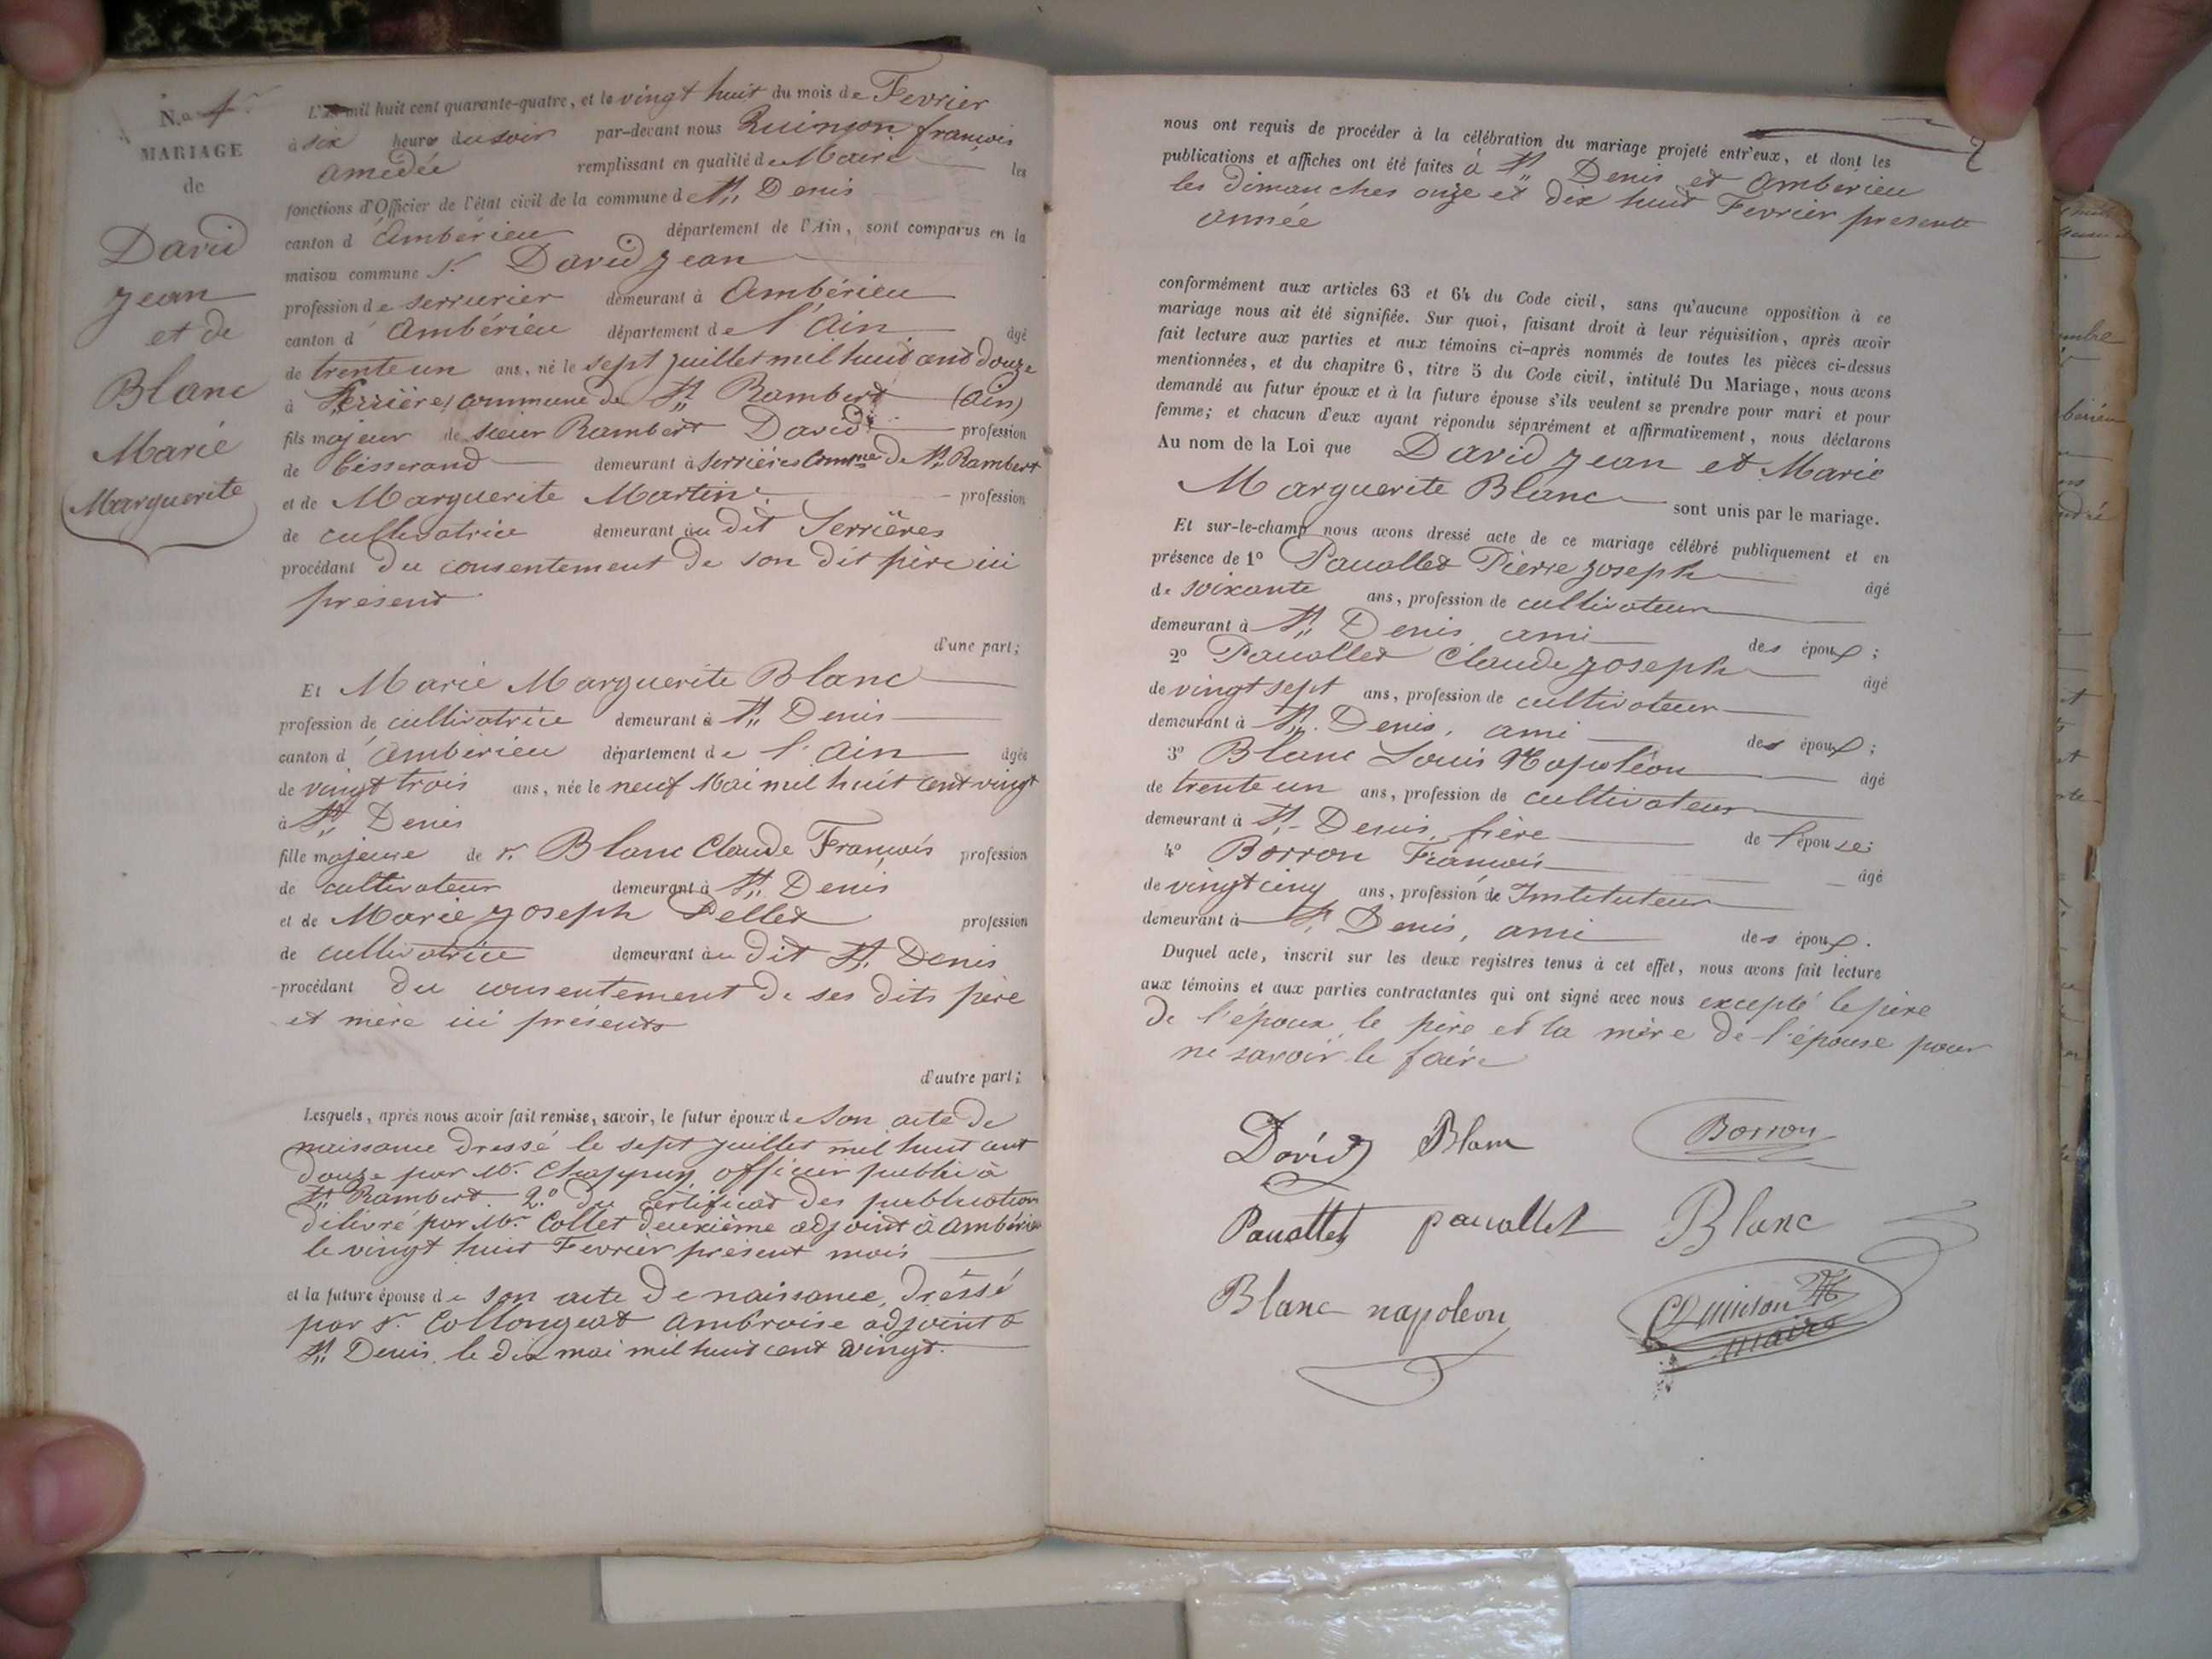 N.o 1er
MARIAGE
de
David
Jean
et de
Blanc
Marie
Marguerite
L'an mil huit cent quarante-quatre, et le vingt huit du mois de Fevrier
à six heures du soir par-devant nous Quinson françois
amédée remplissant en qualité de Maire les
fonctions d'Officier de l'état civil de la commune de St Denis
canton d'Ambérieu département de l'Ain, sont comparus en la
maison commune Sr David Jean
profession de serrurier demeurant à Ambérieu
canton d'Ambérieu département de l'Ain âgé
de trente un ans, né le sept juillet mil huit cent douze
à Serrières, commune de St Rambert (Ain)
fils majeur de sieur Rambert David profession
de Tisserand demeurant à Serrières Comne de St Rambert
et de Marguerite Martin profession
de cultivatrice demeurant au dit Serrières
procédant du consentement de son dit père ici
présent
d'une part;
Et Marie Marguerite Blanc
profession de cultivatrice demeurant à St Denis
canton d'Ambérieu département de l'Ain âgée
de vingt trois ans, née le neuf Mai mil huit cent vingt
à St Denis
fille majeure de Sr Blanc Claude François profession
de cultivateur demeurant à St Denis
et de Marie Joseph Pellet profession
de cultivatrice demeurant au dit St Denis
procédant du consentement de ses dits père
et mère ici présents
d'autre part;
Lesquels, après nous avoir fait remise, savoir, le futur époux de son acte de
naissance dressé le sept juillet mil huit cent
douze par Mr Chappuy officier public à
St Rambert. 2.o du certificat des publications
délivré par Mr Collet deuxième adjoint à Ambérieu
le vingt huit Fevrier présent mois
et la future épouse de son acte de naissance, dressé
par Sr Collongeat Ambroise adjoint à
St Denis, le dix mai mil huit cent vingt.
nous ont requis de procéder à la célébration du mariage projeté entr'eux, et dont les
publications et affiches ont été faites à St Denis et Ambérieu
les dimanches onze et dix huit Fevrier présente
année
conformément aux articles 63 et 64 du Code civil, sans qu'aucune opposition à ce
mariage nous ait été signifiée. Sur quoi, faisant droit à leur réquisition, après avoir
fait lecture aux parties et aux témoins ci-après nommés de toutes les pièces ci-dessus
mentionnées, et du chapitre 6, titre 5 du Code civil, intitulé Du Mariage, nous avons
demandé au futur époux et à la future épouse s'ils veulent se prendre pour mari et pour
femme; et chacun d'eux ayant répondu séparément et affirmativement, nous déclarons
Au nom de la Loi que David Jean et Marie
Marguerite Blanc sont unis par le mariage.
Et sur-le-champ nous avons dressé acte de ce mariage célébré publiquement et en
présence de 1o Paucllet Pierre Joseph âgé
de soixante ans, profession de cultivateur
demeurant à St Denis, ami des époux;
2o Pauollet Claude Joseph âgé
de vingt sept ans, profession de cultivateur
demeurant à St Denis, ami des époux;
3o Blanc Louis Napoléon âgé
de trente un ans, profession de cultivateur
demeurant à St Denis, frère de l'épouse;
4o Borron François âgé
de vingt cinq ans, profession de Instituteur
demeurant à St Denis, ami des époux.
Duquel acte, inscrit sur les deux registres tenus à cet effet, nous avons fait lecture
aux témoins et aux parties contractantes qui ont signé avec nous excepté le père
de l'époux, le père et la mère de l'épouse pour
ne savoir le faire
David Blanc Borron
Pauollet pauollet Blanc
Blanc napoleon Quinson
maire